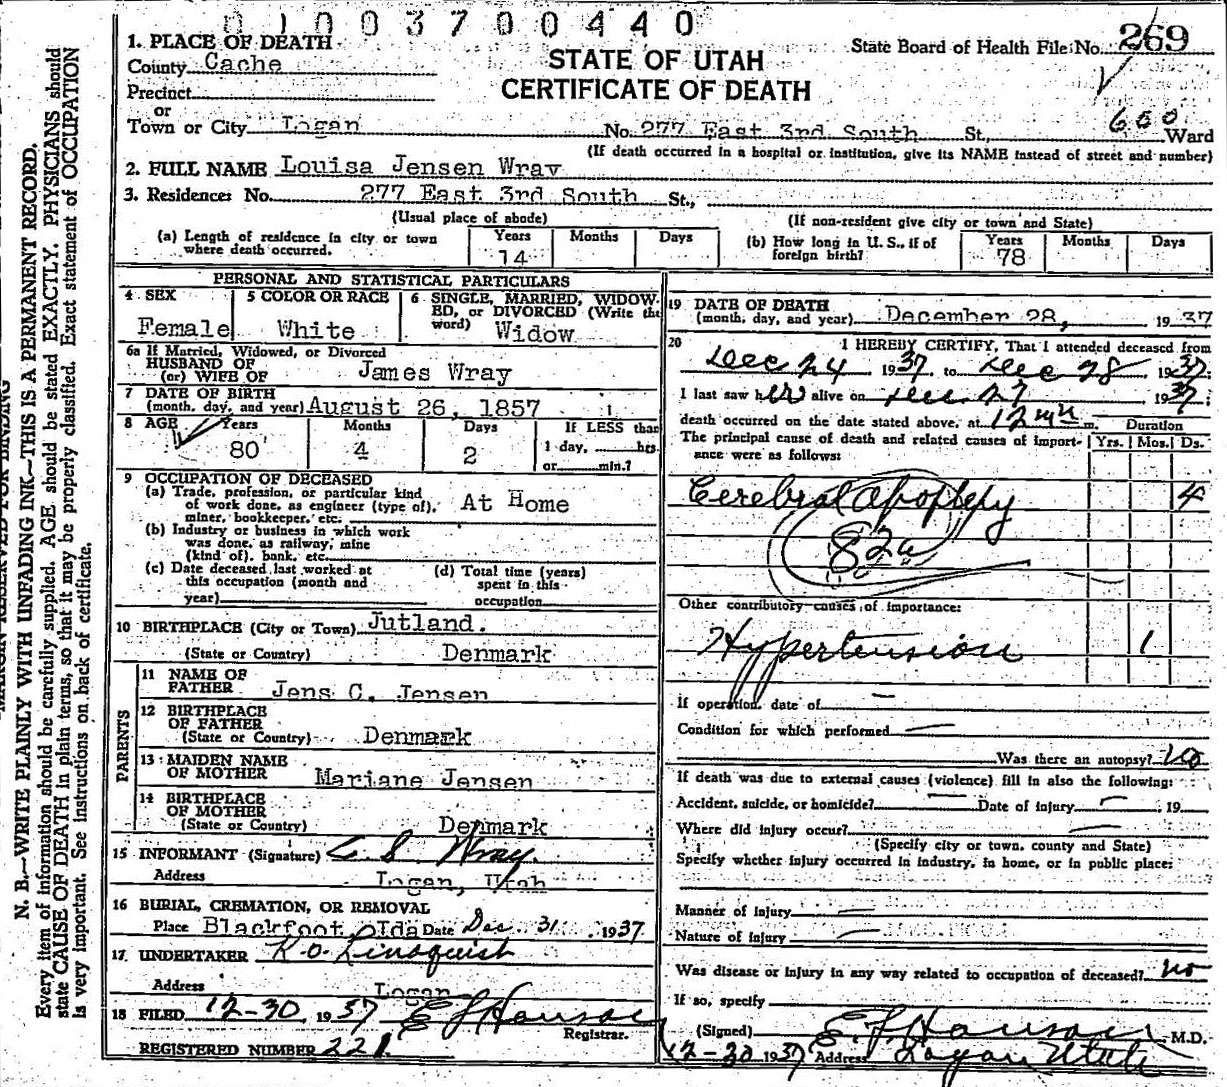 0 1 0 0 3 7 0 0 4 4 0
1. PLACE OF DEATH
County Cache
Precinct
or
Town or City Logan
STATE OF UTAH
CERTIFICATE OF DEATH
State Board of Health File No. 269
No. 277 East 3rd South St., 600 Ward
(If death occurred in a hospital or institution, give its NAME instead of street and number)
2. FULL NAME Louisa Jensen Wray
3. Residence: No. 277 East 3rd South St.,
(Usual place of abode) (If non-resident give city or town and State)
(a) Length of residence in city or town where death occurred. Years 14 Months Days
(b) How long in U. S., if of foreign birth? Years 78 Months Days
PERSONAL AND STATISTICAL PARTICULARS
4 SEX Female
5 COLOR OR RACE White
6 SINGLE, MARRIED, WIDOWED, or DIVORCED (Write the word) Widow
6a If Married, Widowed, or Divorced
HUSBAND OF
(or) WIFE OF James Wray
7 DATE OF BIRTH
(month, day, and year) August 26, 1857
8 AGE Years 80 Months 4 Days 2 If LESS than 1 day, hrs. or min.?
9 OCCUPATION OF DECEASED
(a) Trade, profession, or particular kind
of work done, as engineer (type of), At Home
miner, bookkeeper, etc.
(b) Industry or business in which work
was done, as railway, mine
(kind of), bank, etc.
(c) Date deceased last worked at
this occupation (month and
year)
(d) Total time (years)
spent in this
occupation
10 BIRTHPLACE (City or Town) Jutland.
(State or Country) Denmark
PARENTS
11 NAME OF
FATHER Jens C. Jensen
12 BIRTHPLACE
OF FATHER
(State or Country) Denmark
13 MAIDEN NAME
OF MOTHER Mariane Jensen
14 BIRTHPLACE
OF MOTHER
(State or Country) Denmark
15 INFORMANT (Signature) C S Wray.
Address Logan, Utah
16 BURIAL, CREMATION, OR REMOVAL
Place Blackfoot, Ida Date Dec 31, 1937
17 UNDERTAKER K.O. Lindquist
Address Logan
18 FILED 12-30, 1937 E L Hanson
Registrar.
REGISTERED NUMBER 221.
19 DATE OF DEATH
(month, day, and year) December 28, 1937
20 I HEREBY CERTIFY, That I attended deceased from
Dec 24 1937, to Dec 28, 1937;
I last saw her alive on Dec. 27 1937;
death occurred on the date stated above, at 12 mn m. Duration
The principal cause of death and related causes of importance were as follows: Yrs. Mos. Ds.
Cerebral apoplexy 4
82a
Other contributory causes of importance:
Hypertension 1
If operation, date of
Condition for which performed
Was there an autopsy? no
If death was due to external causes (violence) fill in also the following:
Accident, suicide, or homicide? Date of injury , 19
Where did injury occur?
(Specify city or town, county and State)
Specify whether injury occurred in industry, in home, or in public place:
Manner of injury
Nature of injury
Was disease or injury in any way related to occupation of deceased? no
If so, specify
(Signed) E L Hanson, M.D.
12-30 1937 Address Logan Utah
N. B.—WRITE PLAINLY WITH UNFADING INK—THIS IS A PERMANENT RECORD.
Every item of information should be carefully supplied. AGE should be stated EXACTLY. PHYSICIANS should
state CAUSE OF DEATH in plain terms, so that it may be properly classified. Exact statement of OCCUPATION
is very important. See instructions on back of certificate.
MARGIN RESERVED FOR BINDING